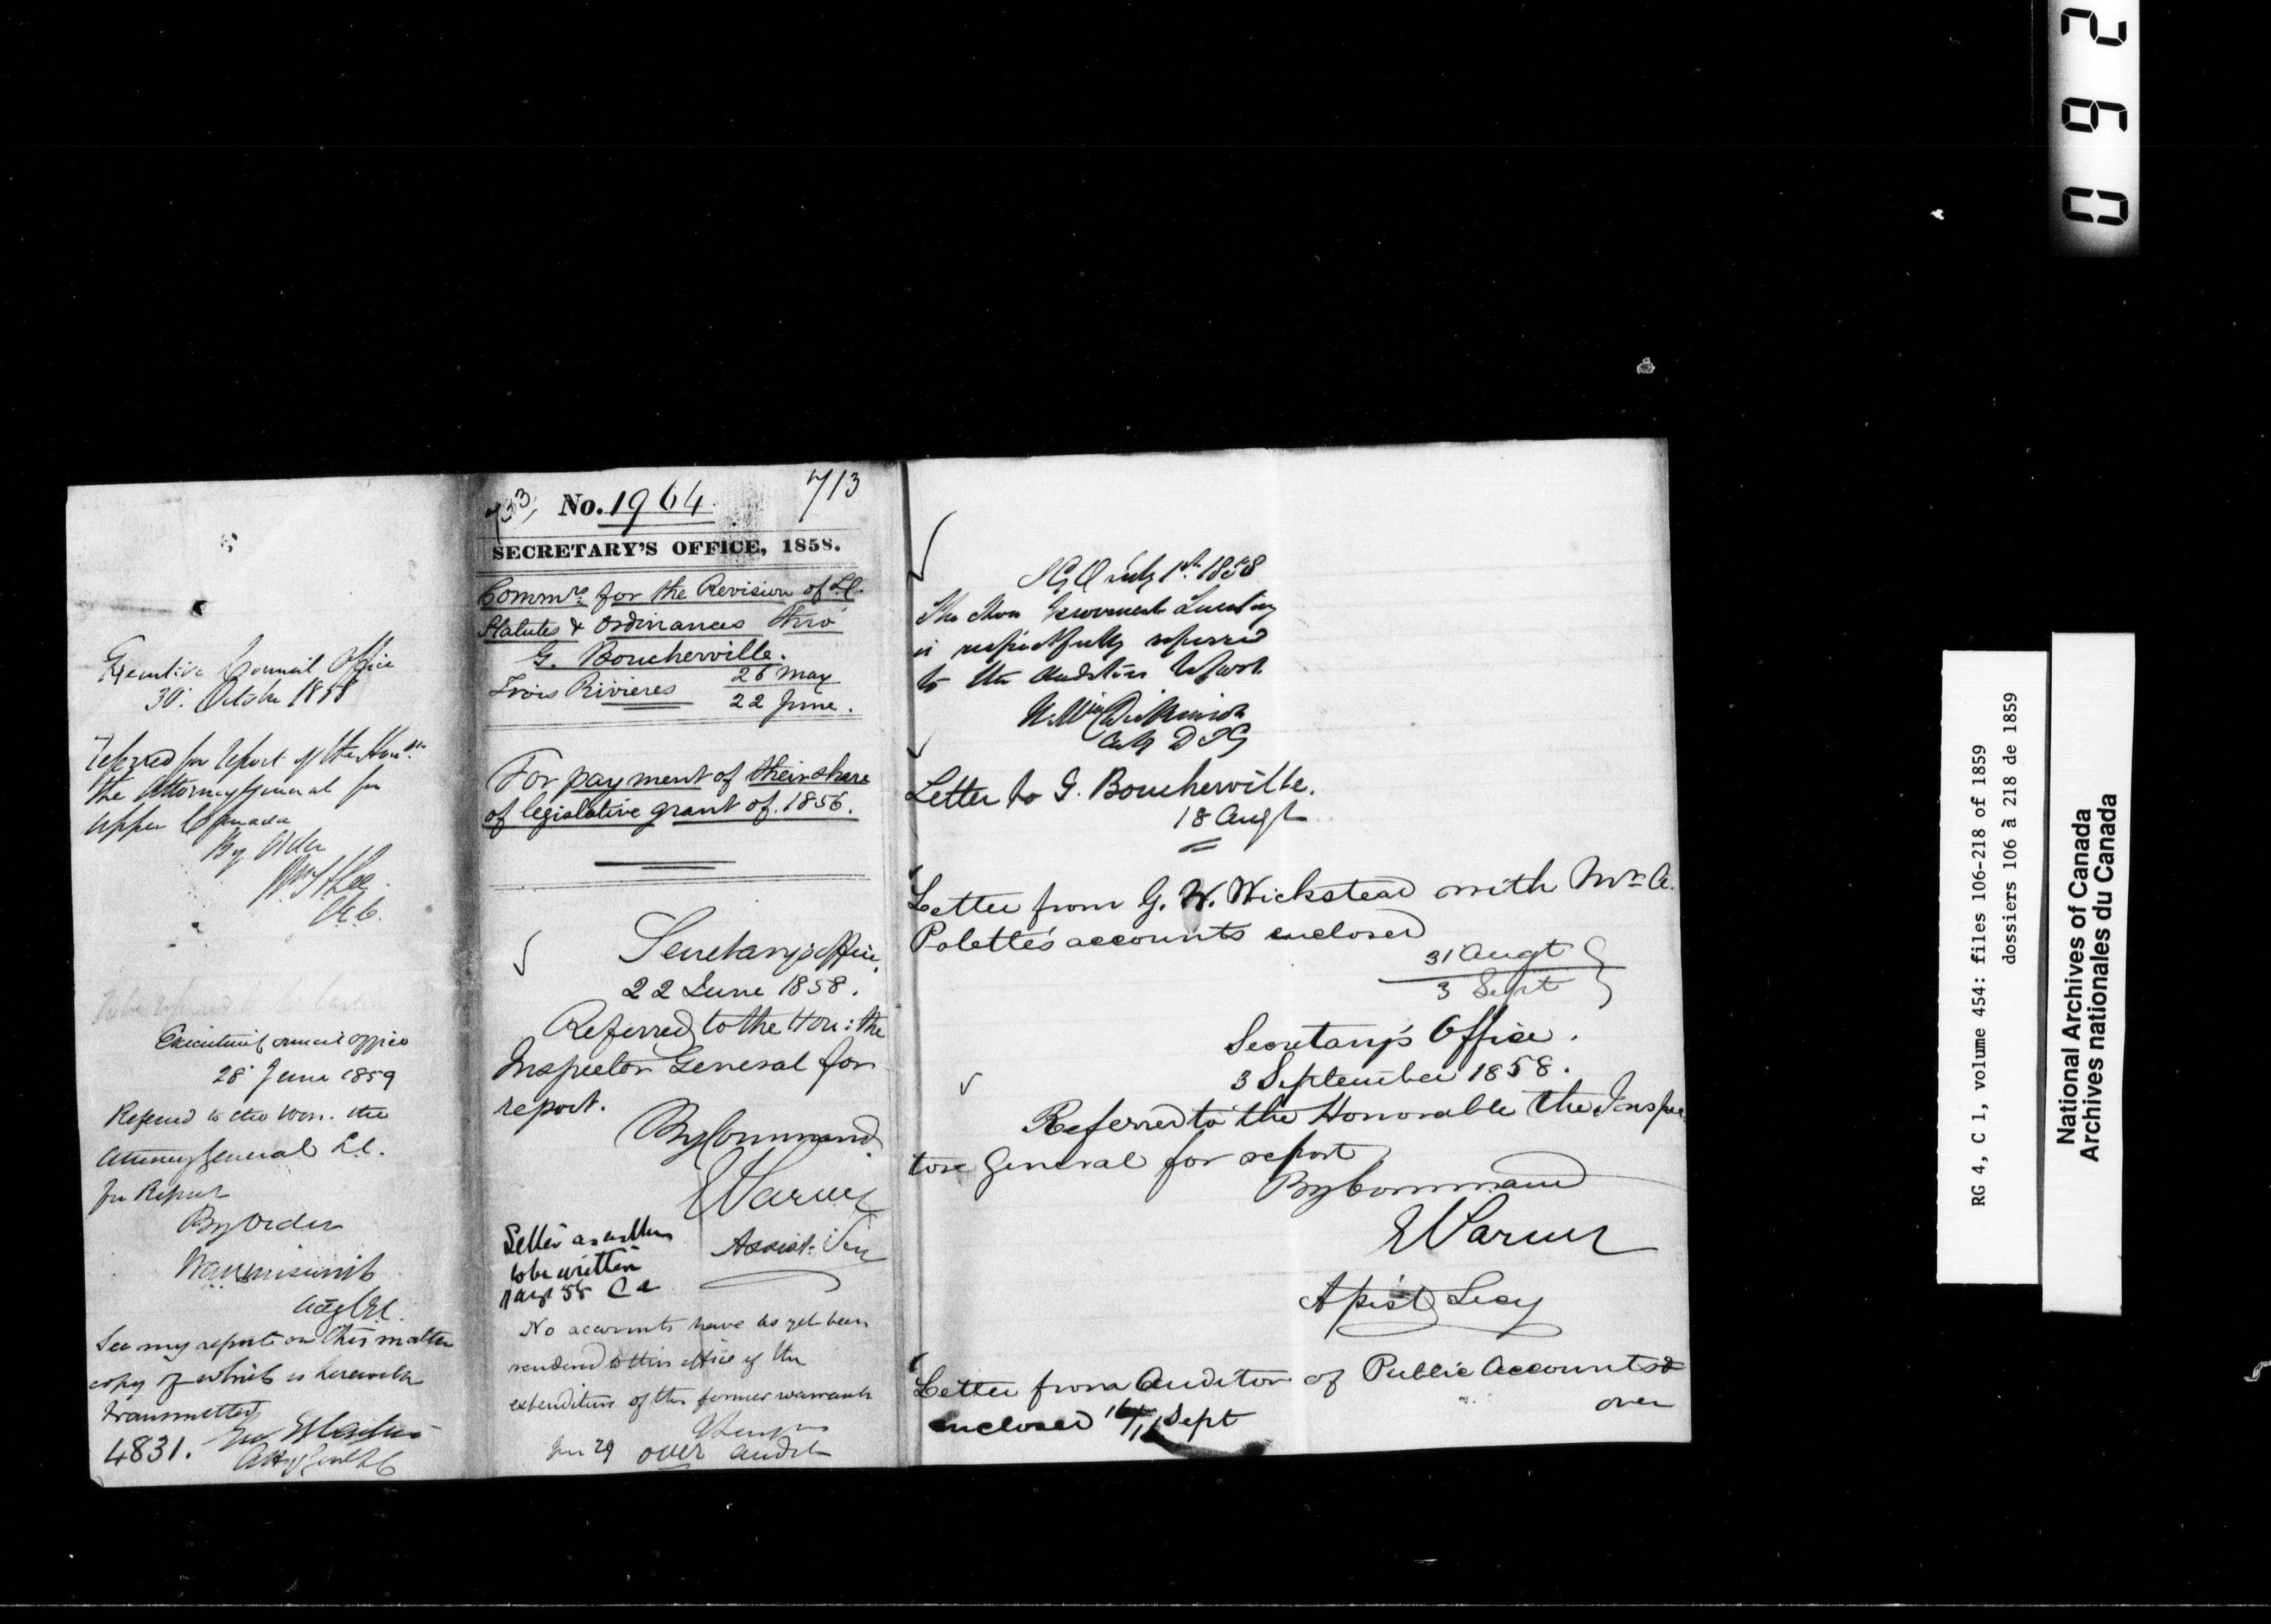 Executive Council Office
30. October 1858
Referred for Report of the Honble
the Attorney General for
Upper Canada
By Order
Wm H Lee
C.E.C.
Executive Council Office
28 June 1859
Referred to the Hon. the
Attorney General L.C.
for Report
By Order
Actg C.E.C.
See my report on this matter
copy of which is herewith
transmitted
4831. Geo. Et. Cartier
Atty Genl L C
733, No. 1964. 713
SECRETARY'S OFFICE, 1858.
Commrs for the Revision of L.C.
Statutes & Ordinances thro'
G. Boucherville.
Trois Rivieres 26 May
22 June.
For payment of their share
of legislative grant of 1856.
Secretary's Office,
22 June 1858.
Referred to the Hon: the
Inspector General for
report.
By Command
E Parent
Assist: Sec
Letter as within
to be written
Aug 58
No accounts have as yet been
rendered to this office of the
expenditure of the former warrants
Jun 29 over Audit
I G O July 1st 1858
The Hon Provincial Secretary
is respectfully referred
to the Auditors Report
Wm Dickinson
Actg D I G
Letter to G. Boucherville.
18 Augt
Letter from G. W. Wicksteed with Mr A.
Polette's accounts enclosed
31 Augt
3 Sept
Secretary's Office.
3 September 1858.
Referred to the Honorable the Inspec
tor General for report
By Command
E Parent
Assist Secy
Letter from Auditor of Public Accounts &
enclosed 16/ Sept over
0 6 2
RG 4, C 1, volume 454: files 106-218 of 1859
dossiers 106 à 218 de 1859
National Archives of Canada
Archives nationales du Canada